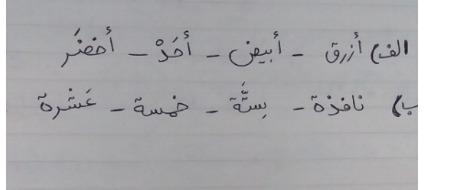 الف) أزرق - أبيض - أحَدْ - أخضَر
ب) نافذة - سِتَّة - خمسة - عَشْرة